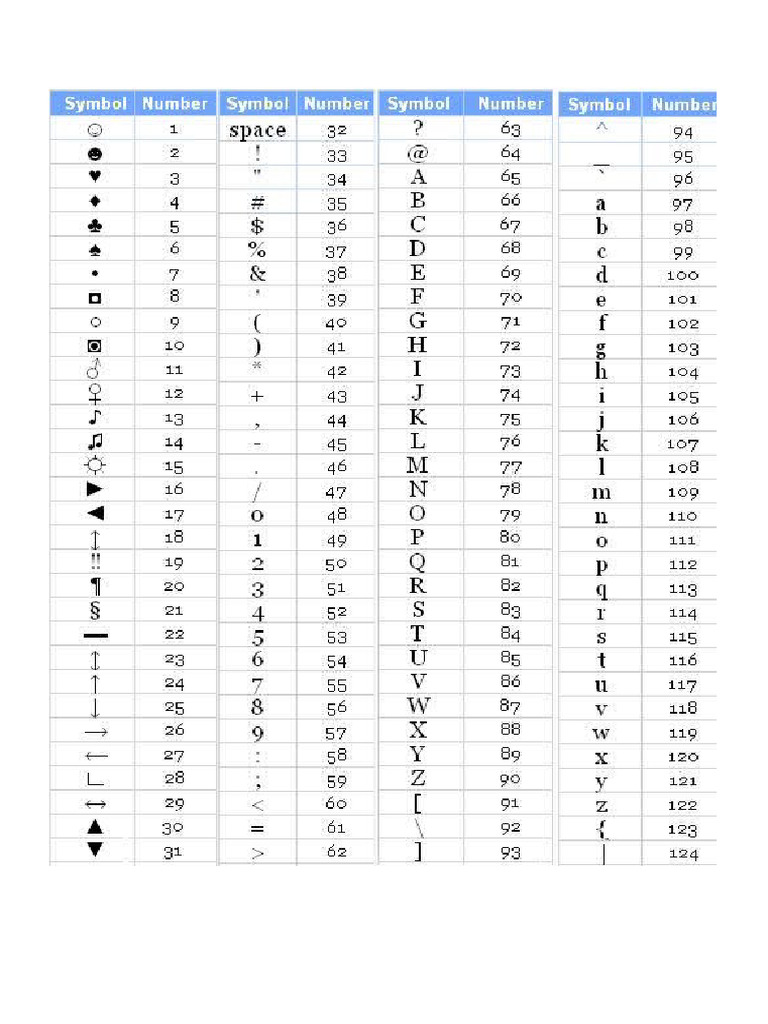 Symbol Number Symbol Number Symbol Number Symbol Number
☺ 1 space 32 ? 63 ^ 94
☻ 2 ! 33 @ 64 _ 95
♥ 3 " 34 A 65 ` 96
♦ 4 # 35 B 66 a 97
♣ 5 $ 36 C 67 b 98
♠ 6 % 37 D 68 c 99
• 7 & 38 E 69 d 100
◘ 8 ' 39 F 70 e 101
○ 9 ( 40 G 71 f 102
◙ 10 ) 41 H 72 g 103
♂ 11 * 42 I 73 h 104
♀ 12 + 43 J 74 i 105
♪ 13 , 44 K 75 j 106
♫ 14 - 45 L 76 k 107
☼ 15 . 46 M 77 l 108
► 16 / 47 N 78 m 109
◄ 17 0 48 O 79 n 110
↕ 18 1 49 P 80 o 111
‼ 19 2 50 Q 81 p 112
¶ 20 3 51 R 82 q 113
§ 21 4 52 S 83 r 114
▬ 22 5 53 T 84 s 115
↨ 23 6 54 U 85 t 116
↑ 24 7 55 V 86 u 117
↓ 25 8 56 W 87 v 118
→ 26 9 57 X 88 w 119
← 27 : 58 Y 89 x 120
∟ 28 ; 59 Z 90 y 121
↔ 29 < 60 [ 91 z 122
▲ 30 = 61 \ 92 { 123
▼ 31 > 62 ] 93 | 124